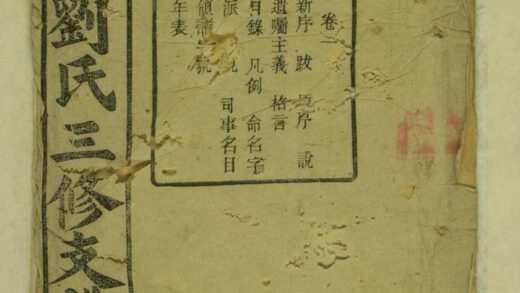 劉氏三修支
卷一
新序 跋 序 說
遺囑主義 格言
目錄 凡例 命名字
派
領譜 號 司事名目
年表